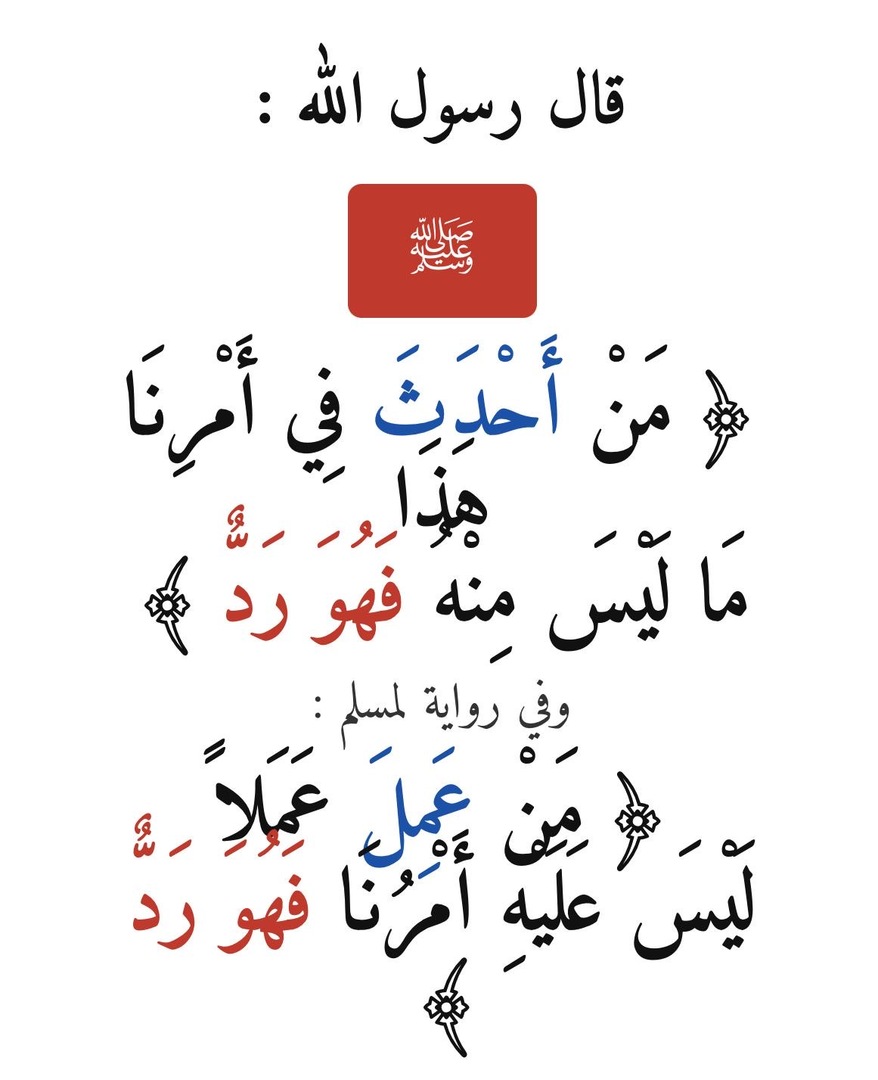 قال رسول الله :
ﷺ
﴿ مَنْ أَحْدَثَ فِي أَمْرِنَا
هذا
مَا لَيْسَ مِنْهُ فَهُوَ رَدٌّ ﴾
وفي رواية لمسلم :
﴿ مَنْ عَمِلَ عَمَلاً
لَيْسَ عَلَيْهِ أَمْرُنَا فَهُوَ رَدٌّ
﴾